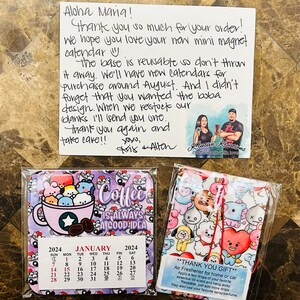 Aloha Maria!
Thank you so much for your order!
We hope you love your new mini magnet
calendar
The base is reusable so don't throw
it away. We'll have new calendars for
purchase around August. And I didn't
forget that you wanted the boba
design. When we restock our
blanks I'll send you one.
Thank you again and
take care!!
Love,
Coffee
IS ALWAYS
A GOOD IDEA
2024 JANUARY 2024
SUN MON TUE WED THU FRI SAT
1 2 3 4 5 6
7 8 9 10 11 12 13
14 15 16 17 18 19 20
21 22 23 24 25 26 27
28 29 30 31
**THANK YOU GIFT**
Air Freshener for Home or Car